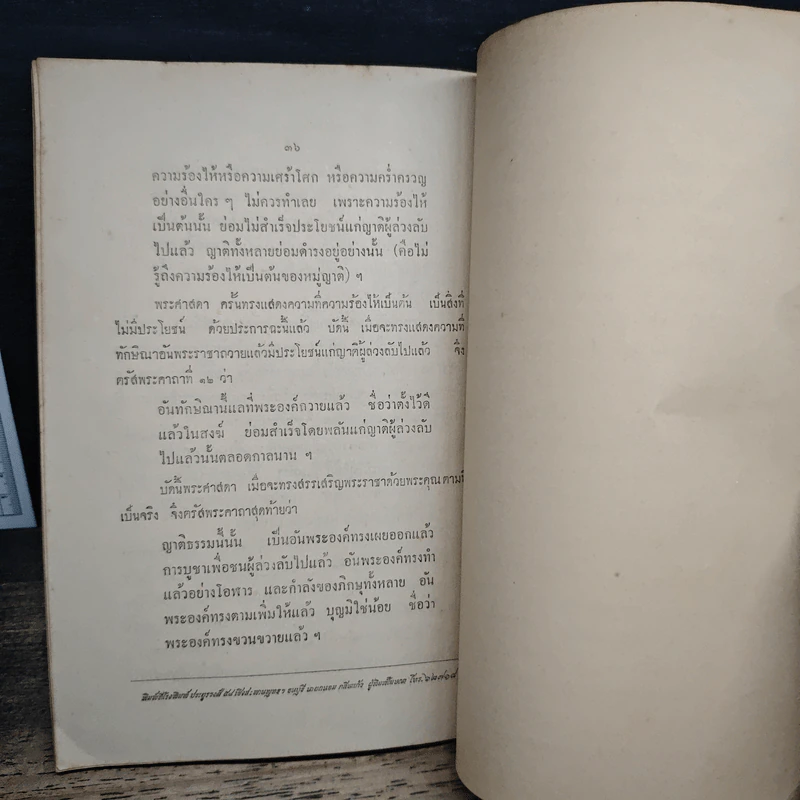 ๓๖
ความร้องไห้หรือความเศร้าโศก หรือความคร่ำครวญ
อย่างอื่นใคร ๆ ไม่ควรทำเลย เพราะความร้องไห้
เป็นต้นนั้น ย่อมไม่สำเร็จประโยชน์แก่ญาติผู้ล่วงลับ
ไปแล้ว ญาติทั้งหลายย่อมดำรงอยู่อย่างนั้น (คือไม่
รู้ถึงความร้องไห้เป็นต้นของหมู่ญาติ) ฯ
พระศาสดา ครั้นทรงแสดงความที่ความร้องไห้เป็นต้น เป็นสิ่งที่
ไม่มีประโยชน์ ด้วยประการฉะนี้แล้ว บัดนี้ เมื่อจะทรงแสดงความที่
ทักษิณาอันพระราชาถวายแล้วมีประโยชน์แก่ญาติผู้ล่วงลับไปแล้ว จึง
ตรัสพระคาถาที่ ๑๒ ว่า
อันทักษิณานี้แลที่พระองค์ถวายแล้ว ชื่อว่าตั้งไว้ดี
แล้วในสงฆ์ ย่อมสำเร็จโดยพลันแก่ญาติผู้ล่วงลับ
ไปแล้วนั้นตลอดกาลนาน ฯ
บัดนี้พระศาสดา เมื่อจะทรงสรรเสริญพระราชาด้วยพระคุณตามที่
เป็นจริง จึงตรัสพระคาถาสุดท้ายว่า
ญาติธรรมนี้นั้น เป็นอันพระองค์ทรงเผยออกแล้ว
การบูชาเพื่อชนผู้ล่วงลับไปแล้ว อันพระองค์ทรงทำ
แล้วอย่างโอฬาร และกำลังของภิกษุทั้งหลาย อัน
พระองค์ทรงตามเพิ่มให้แล้ว บุญมิใช่น้อย ชื่อว่า
พระองค์ทรงขวนขวายแล้ว ฯ
พิมพ์ที่โรงพิมพ์ ธนบุรี ผู้พิมพ์โฆษณา โทร.